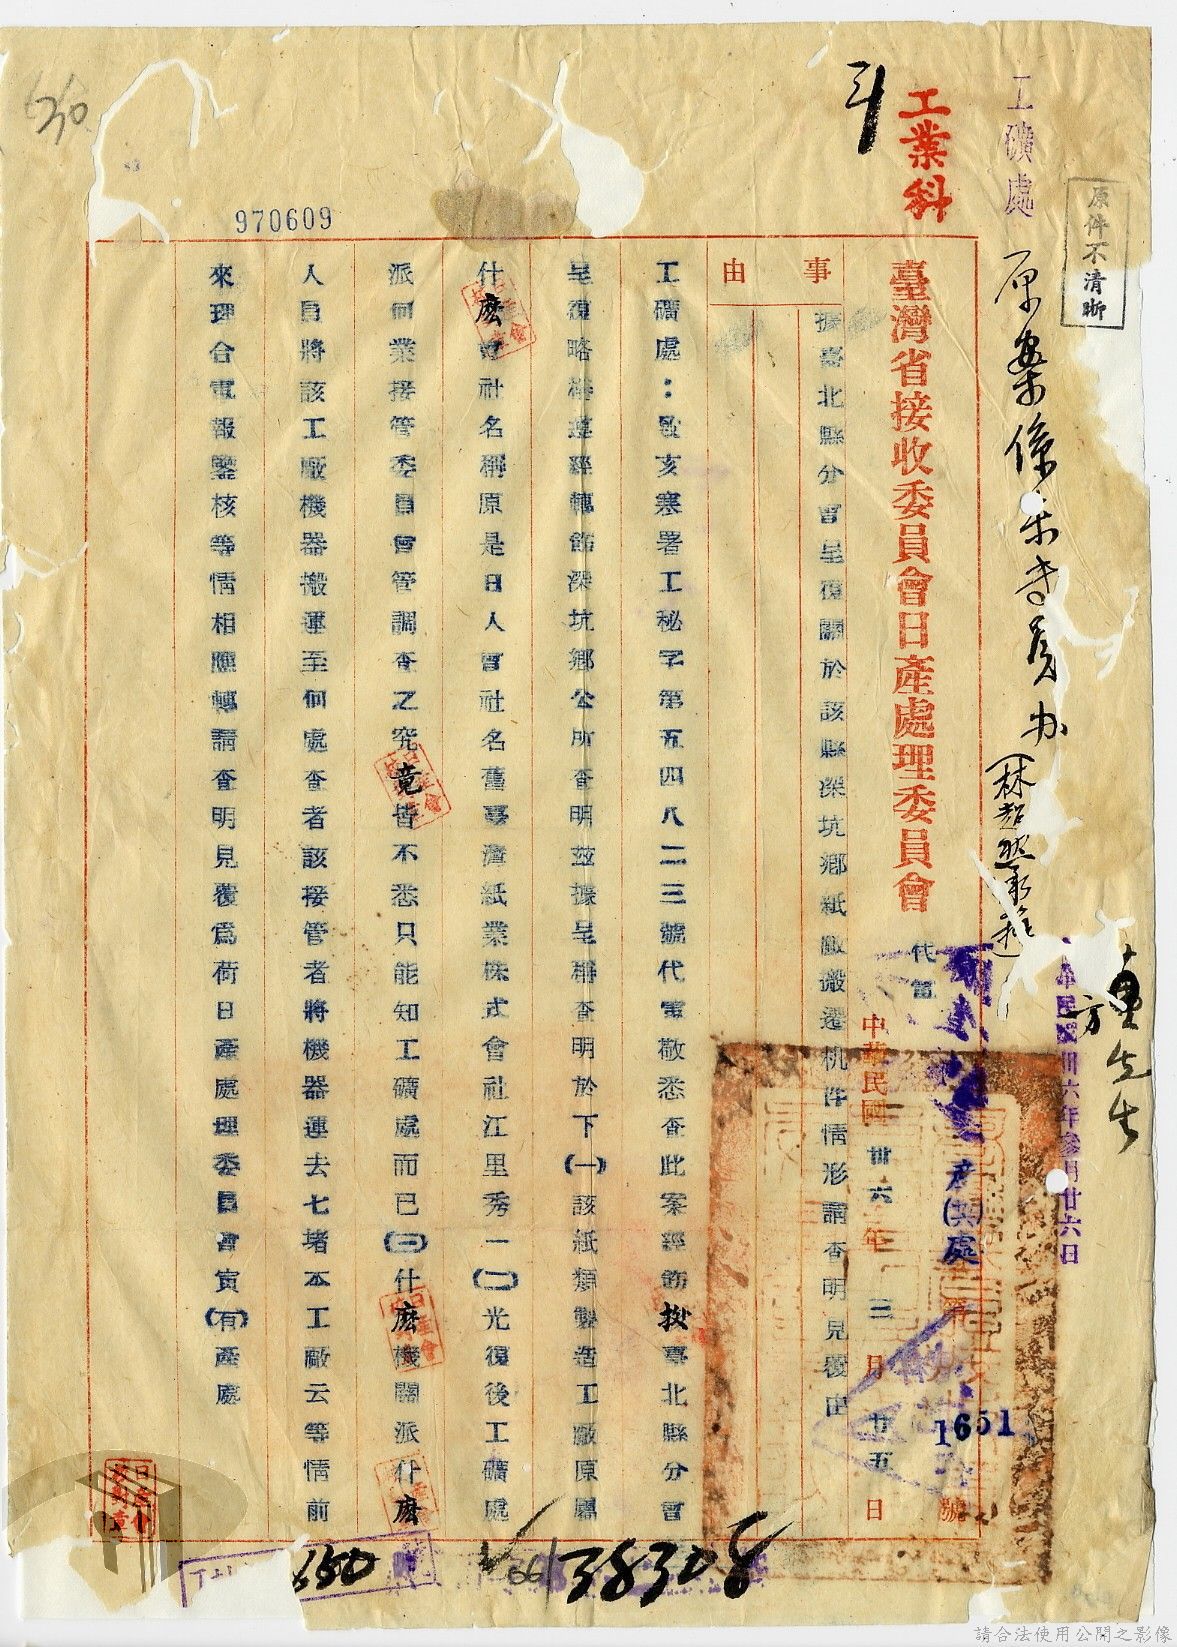 原件不清晰
工礦處
原案係
办
先生
工業科
臺灣省接收委員會日產處理委員會
代電
中華民國卅六年三月廿五日
產(卅六)處
1651
號
民國卅六年參月廿六日
事由
據臺北縣分會呈復關於該縣深坑鄉紙廠搬遷机件情形請查明見覆由
工礦處:敬亥寒署工秘字第五四八二三號代電敬悉查此案經飭按臺北縣分會
呈復略稱遵經轉飭深坑鄉公所查明茲據呈稱查明於下(一)該紙類製造工廠原屬
什麽會社名稱原是日人會社名舊臺灣紙業株式會社江里秀一(二)光復後工礦處
派何業接管委員會管調查之究竟皆不悉只能知工礦處而已(三)什麽機關派什麽
人員將該工廠機器搬運至何處查者該接管者將機器運去七堵本工廠云等情前
來理合電報鑒核等情相應轉請查明見覆爲荷日產處理委員會寅(有)產處
970609
636
38308
請合法使用公開之影像